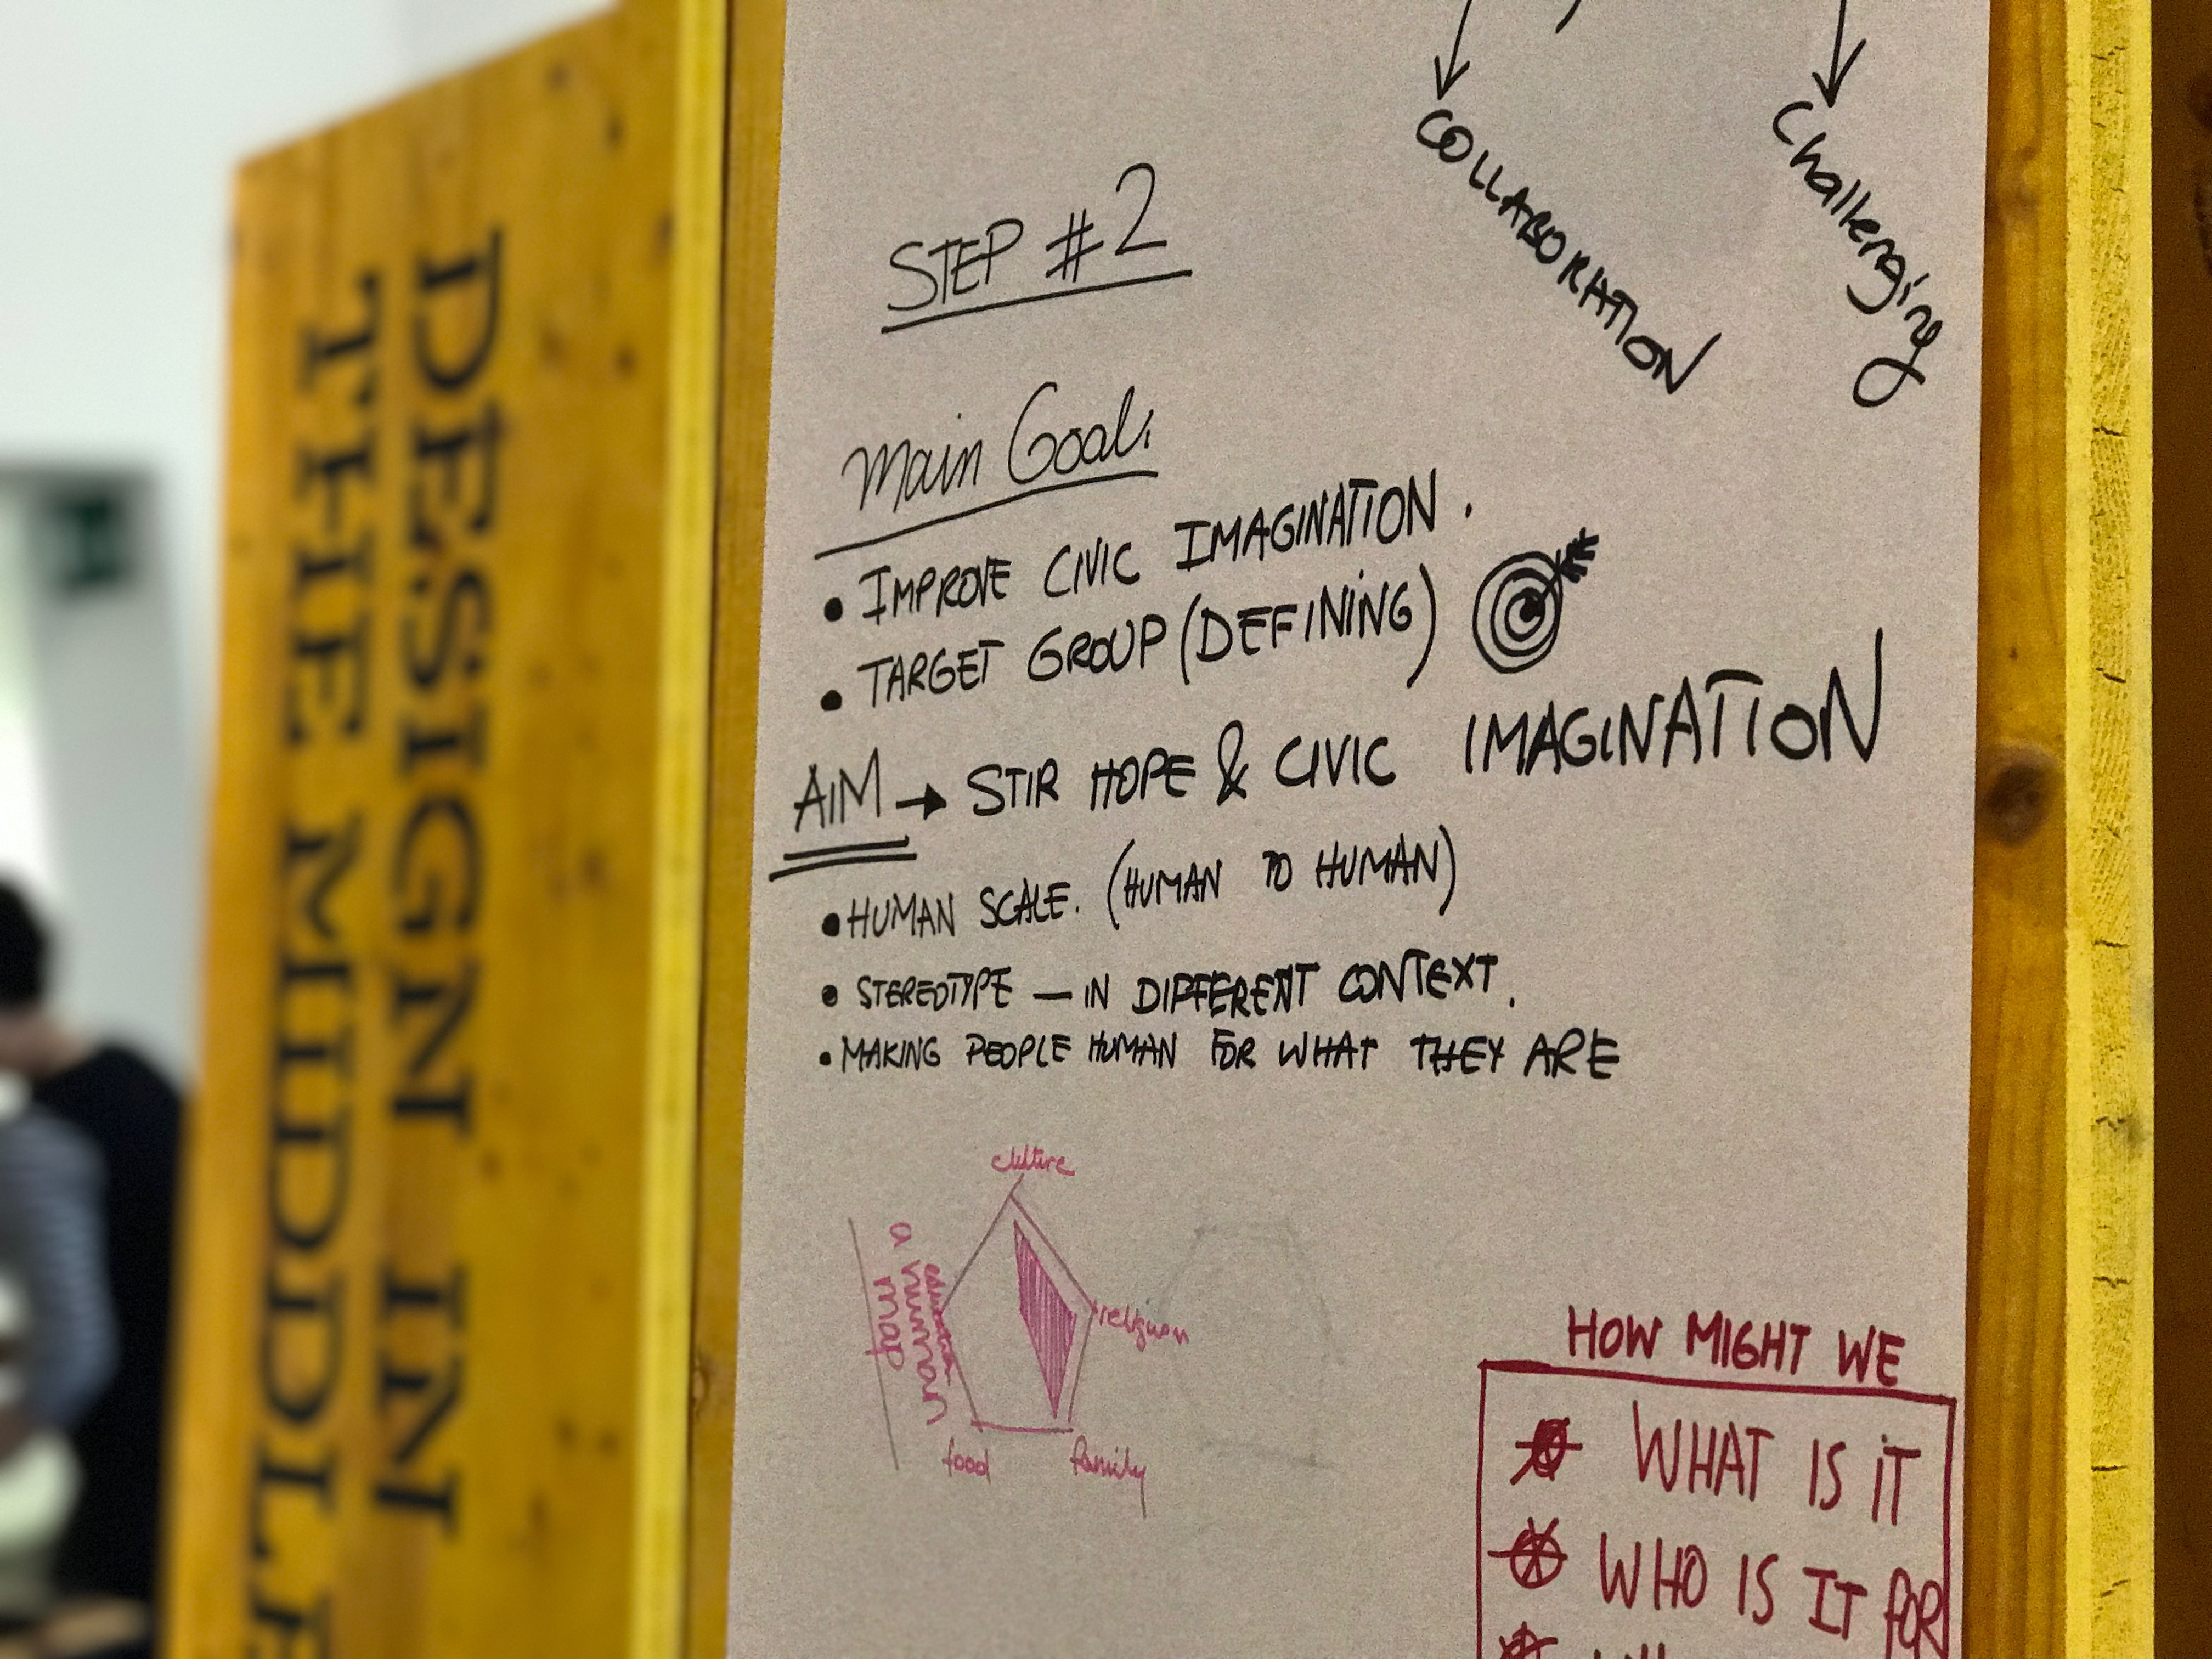 DESIGN IN
THE MIDDLE
COLLABORATION
Challenging
STEP #2
Main Goal:
• IMPROVE CIVIC IMAGINATION.
• TARGET GROUP (DEFINING)
AIM → STIR HOPE & CIVIC IMAGINATION
• HUMAN SCALE. (HUMAN TO HUMAN)
• STEREOTYPE — IN DIFFERENT CONTEXT.
• MAKING PEOPLE HUMAN FOR WHAT THEY ARE
culture
religion
family
food
a human
map
HOW MIGHT WE
WHAT IS IT
WHO IS IT FOR